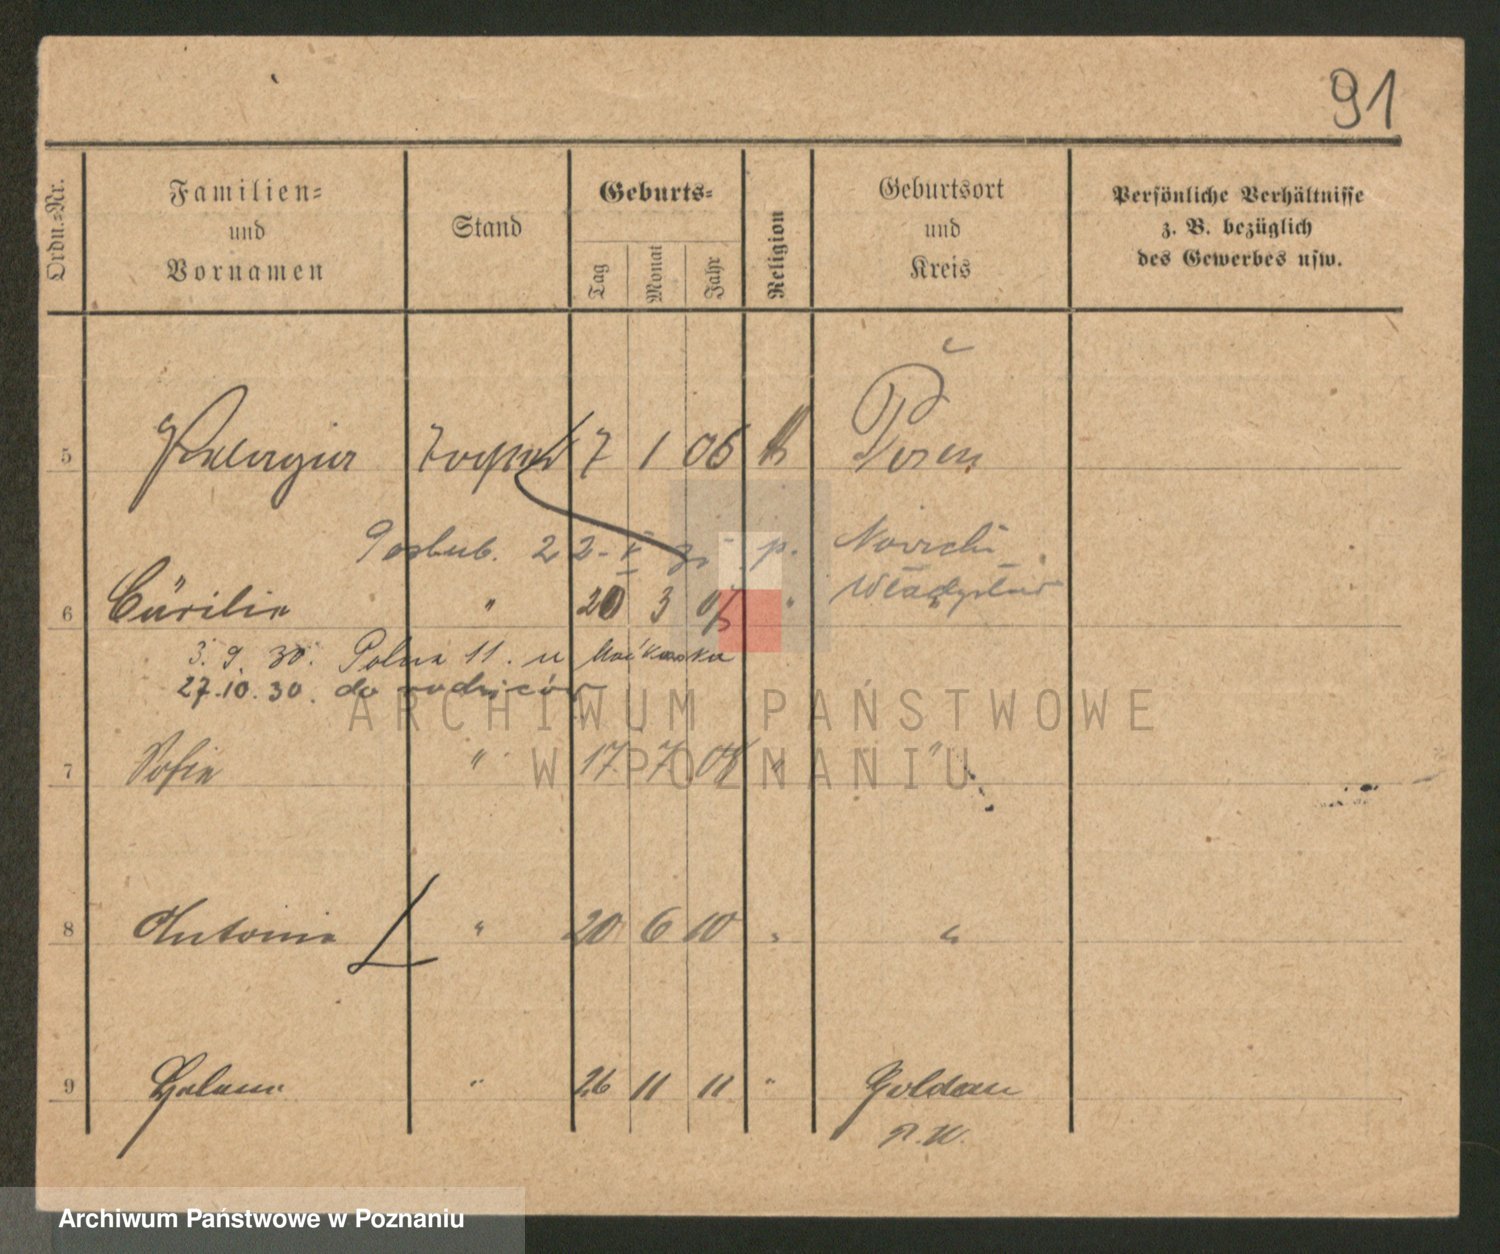 91
Ordn.-Nr.
Familien-
und
Vornamen
Stand
Geburts-
Tag
Monat
Jahr
Religion
Geburtsort
und
Kreis
Persönliche Verhältnisse
z. B. bezüglich
des Gewerbes usw.
5 Pelagia Tochter 7 1 06 k Posen
Poślub. 22- X p. Nowicki
Władysław
6 Cäcilie " 20 3 07 "
3. 9. 30. Polna 11. u Maćkowska
27.10.30. do rodziców
7 Sofie " 17 7 08 " "
8 Antonie " 20 6 10 " "
9 Helene " 26 11 11 " Goldau
ARCHIWUM PAŃSTWOWE
W POZNANIU
Archiwum Państwowe w Poznaniu